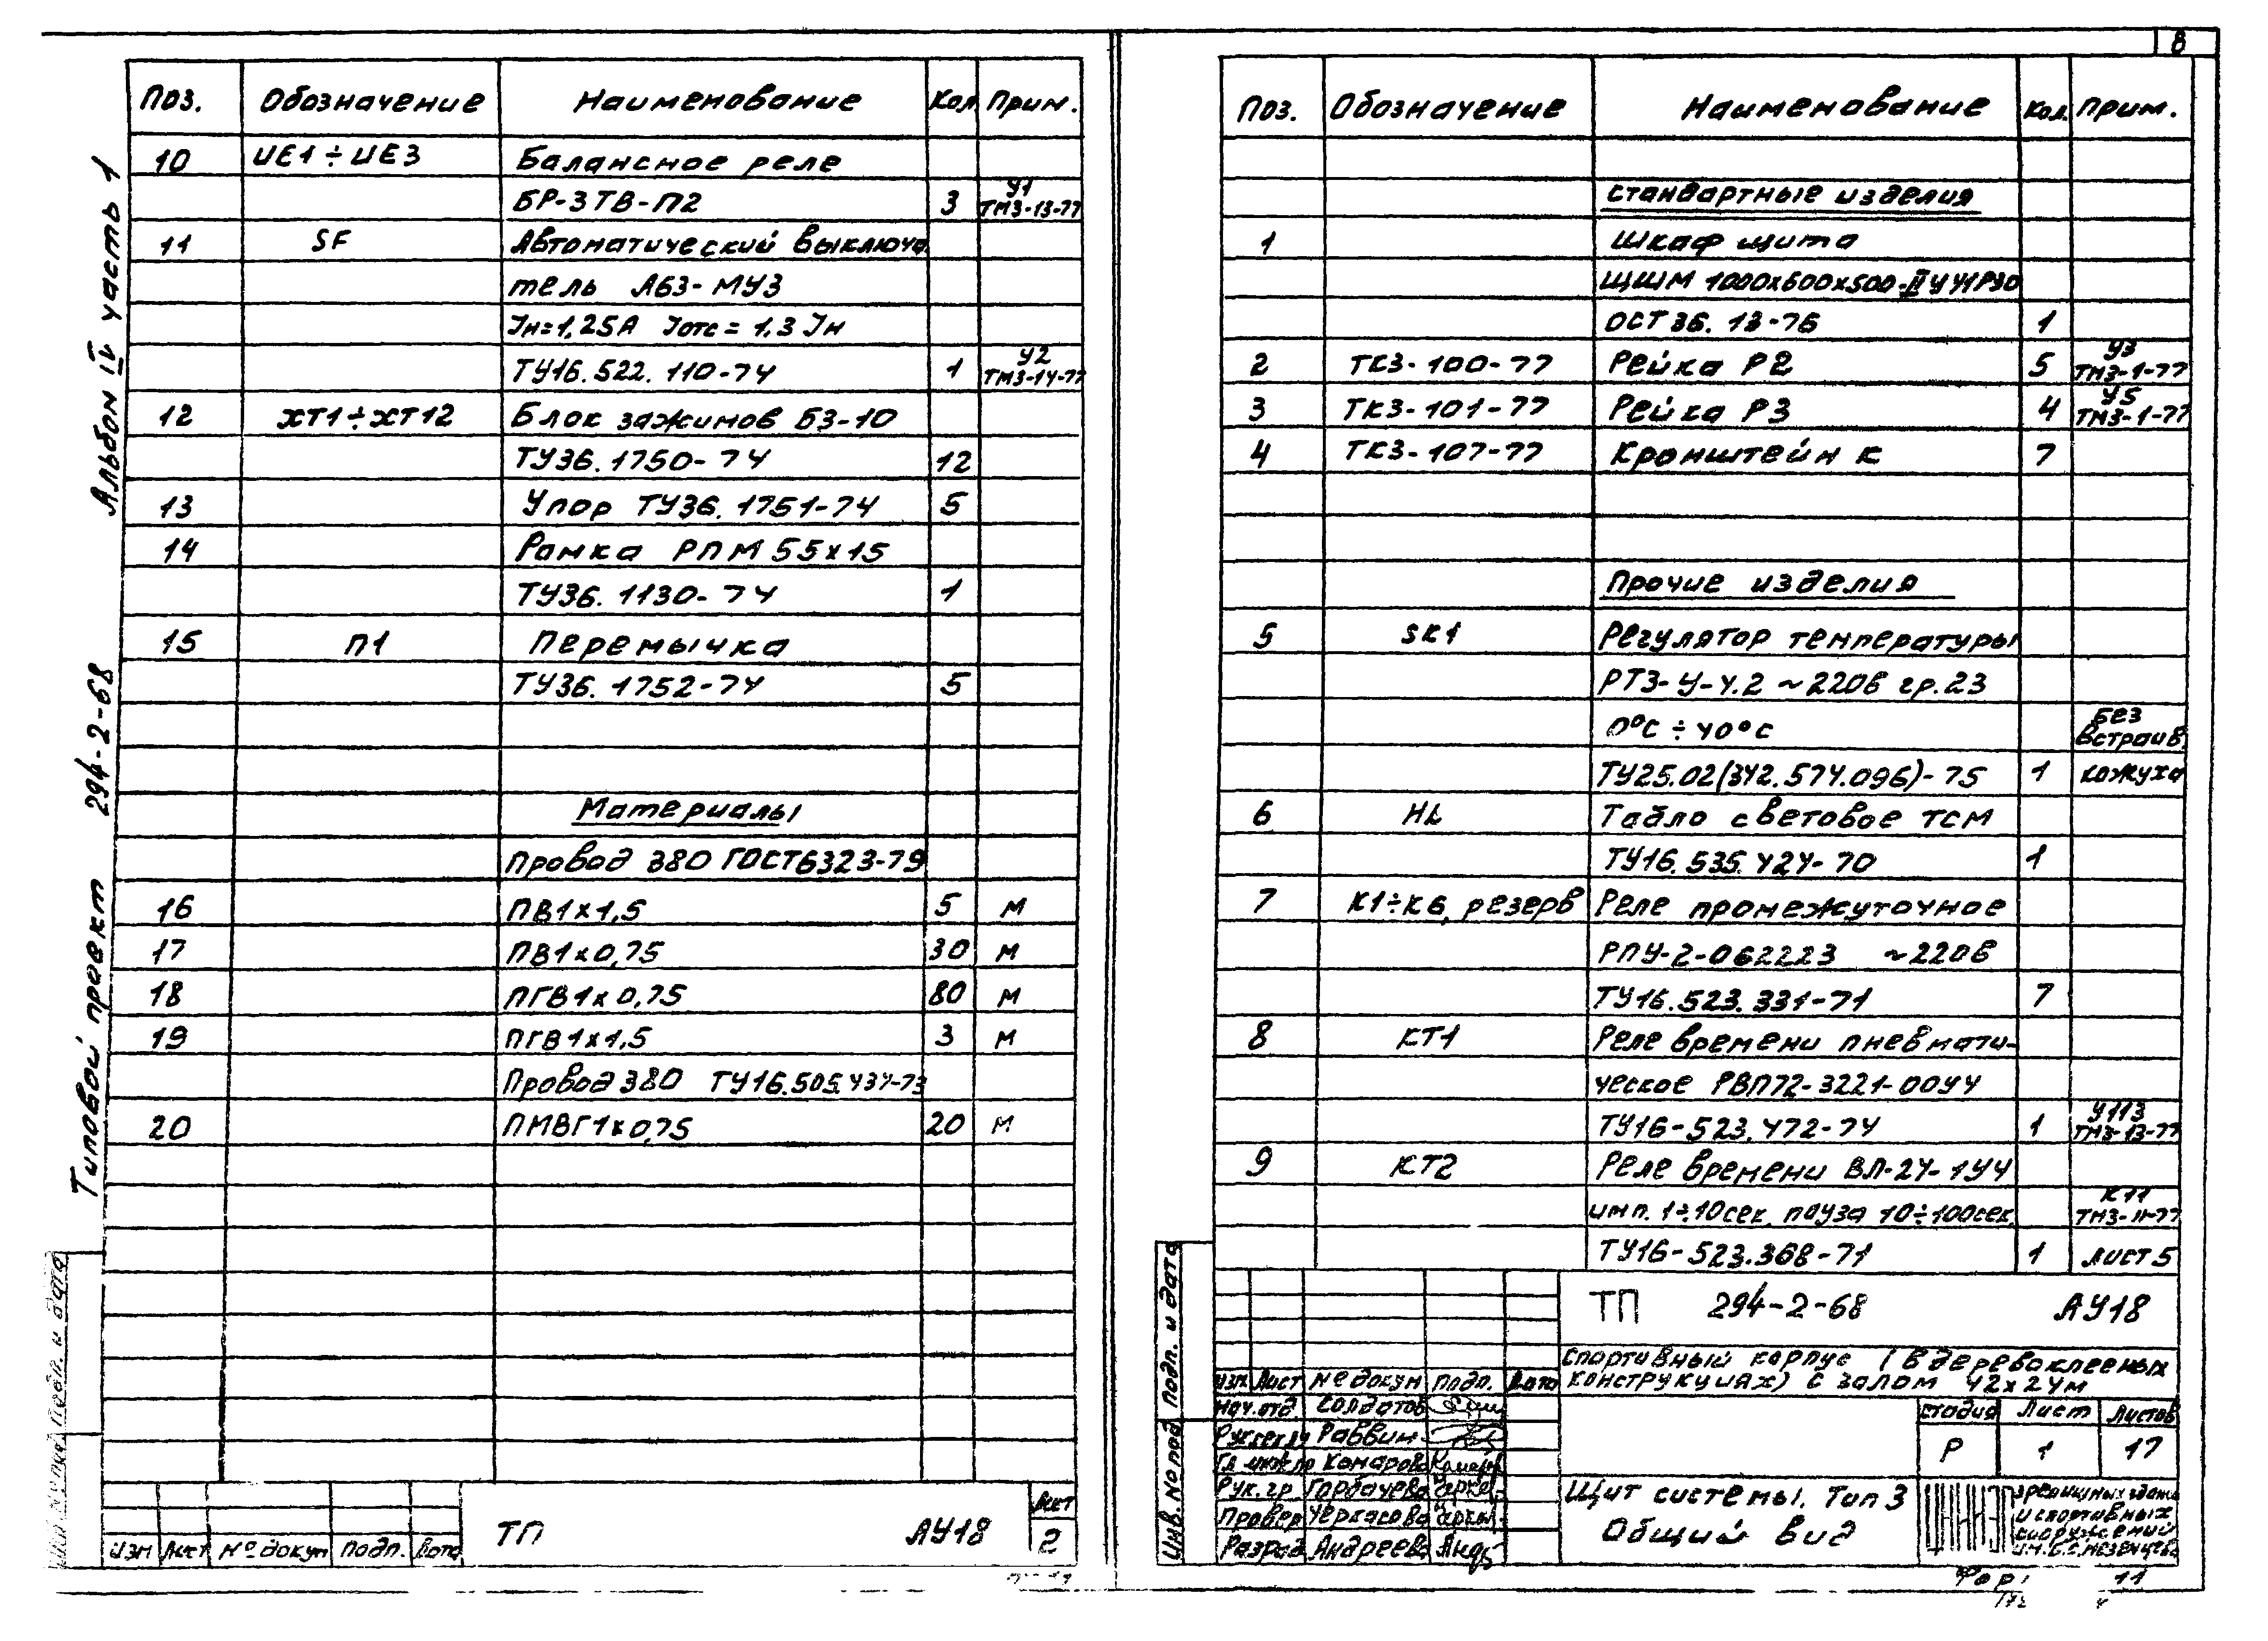 8
Типовой проект 294-2-68 Альбом IV часть 1
Поз. Обозначение Наименование Кол. Прим.
10 UE1÷UE3 Балансное реле
БР-3ТВ-П2 3 У1 ТМ3-13-77
11 SF Автоматический выключа
тель А63-МУ3
Iн=1,25А Iотс=1,3 Iн
ТУ16.522.110-74 1 У2 ТМ3-14-77
12 ХТ1÷ХТ12 Блок зажимов БЗ-10
ТУ36.1750-74 12
13 Упор ТУ36.1751-74 5
14 Рамка РПМ 55х15
ТУ36.1130-74 1
15 П1 Перемычка
ТУ36.1752-74 5
Материалы
Провод 380 ГОСТ6323-79
16 ПВ1х1,5 5 м
17 ПВ1х0,75 30 м
18 ПГВ1х0,75 80 м
19 ПГВ1х1,5 3 м
Провод 380 ТУ16.505.434-73
20 ПМВГ1х0,75 20 м
Изм Лист № докум Подп. Дата
ТП АУ18
Лист
2
Поз. Обозначение Наименование Кол. Прим.
Стандартные изделия
1 Шкаф щита
ЩШМ 1000х600х500-II УУ1Р30
ОСТ 36.13-76 1
2 ТК3-100-77 Рейка Р2 5 У3 ТМ3-1-77
3 ТК3-101-77 Рейка Р3 4 У5 ТМ3-1-77
4 ТК3-107-77 Кронштейн К 7
Прочие изделия
5 SK1 Регулятор температуры
РТ3-У-4.2 ~220в гр.23
0°С÷40°С Без встраив.
ТУ25.02(342.574.096)-75 1 кожуха
6 HL Табло световое ТСМ
ТУ16.535.424-70 1
7 К1÷К6, резерв Реле промежуточное
РПУ-2-062223 ~220в
ТУ16.523.331-71 7
8 КТ1 Реле времени пневмати-
ческое РВП72-3221-00У4
ТУ16-523.472-74 1 У113 ТМ3-13-77
9 КТ2 Реле времени ВЛ-24-1У4
имп. 1÷10сек. пауза 10÷100сек. К11 ТМ3-11-77
ТУ16-523.368-71 1 лист 5
Инв. № подл Подп. и дата
ТП 294-2-68 АУ18
Спортивный корпус (в деревоклееных
конструкциях) с залом 42х24м
Изм Лист № докум Подп. Дата
Нач.отд. Солдатов
Рук.сект. Раввин
Гл. инж. пр Комарова
Рук. гр. Горбачева
Провер Черкасова
Разраб Андреева
Стадия Лист Листов
Р 1 17
Щит системы. Тип 3
Общий вид
зрелищных здани
и спортивных
сооружений
им. Б.С. Мезенцева